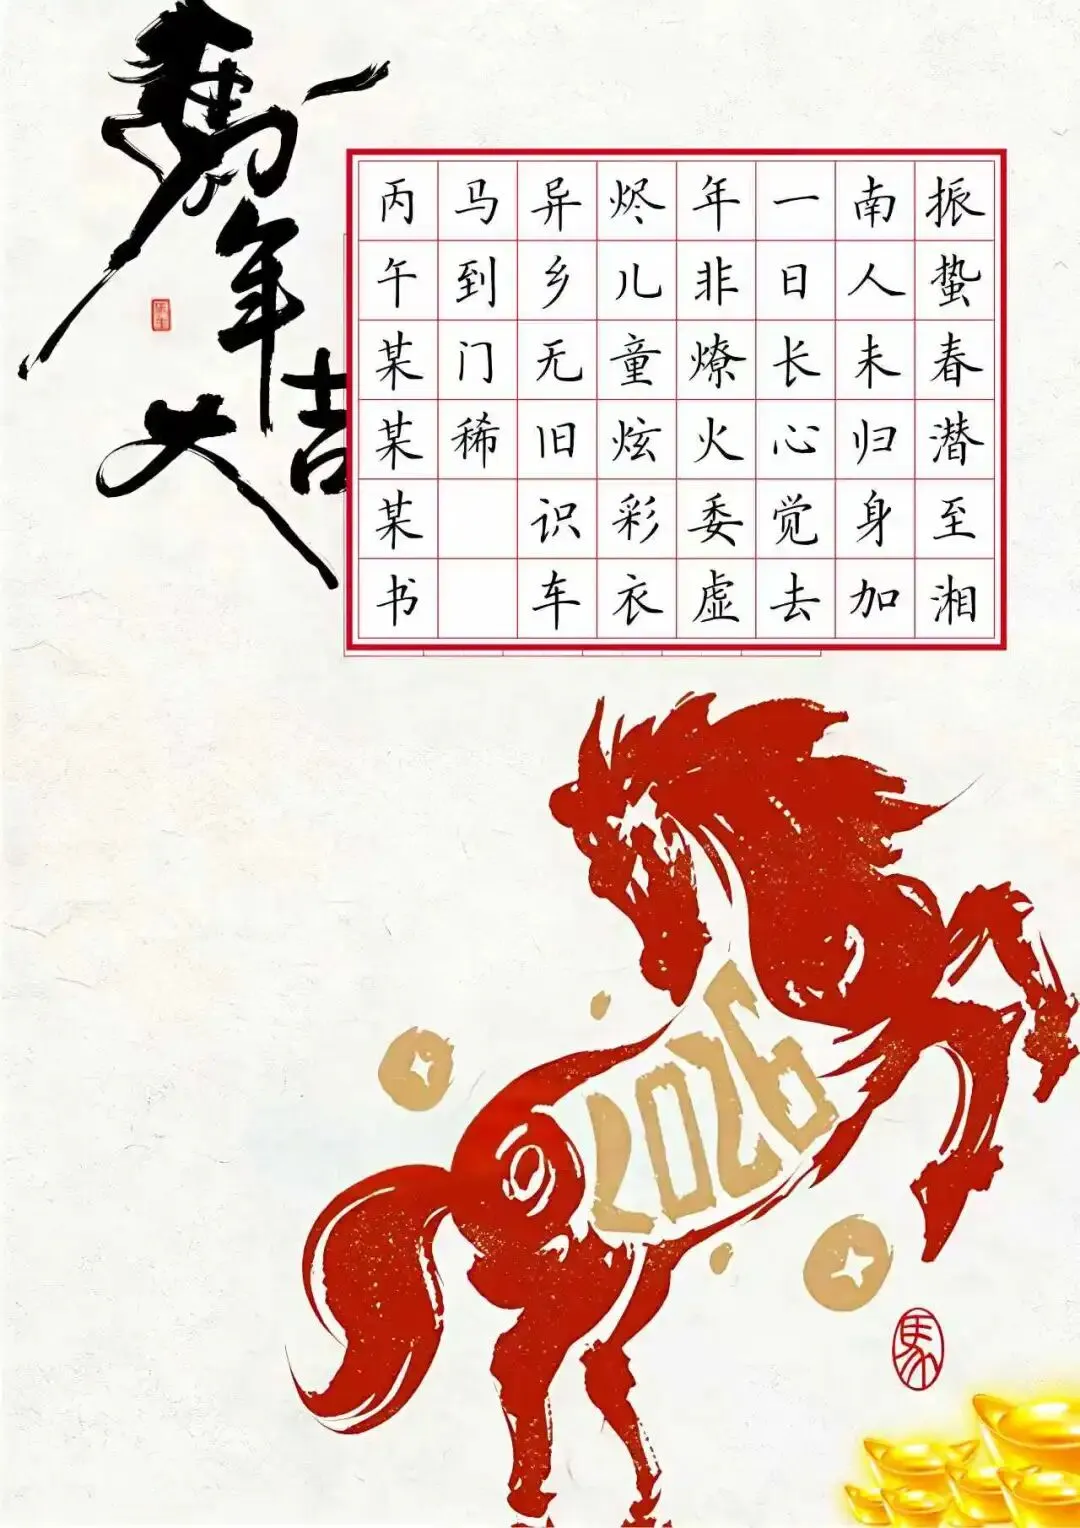 馬年大吉
振蛰春潜至湘
南人未归身加
一日长心觉去
年非燎火委虚
烬儿童炫彩衣
异乡无旧识车
马到门稀
丙午某某某书
2026
馬